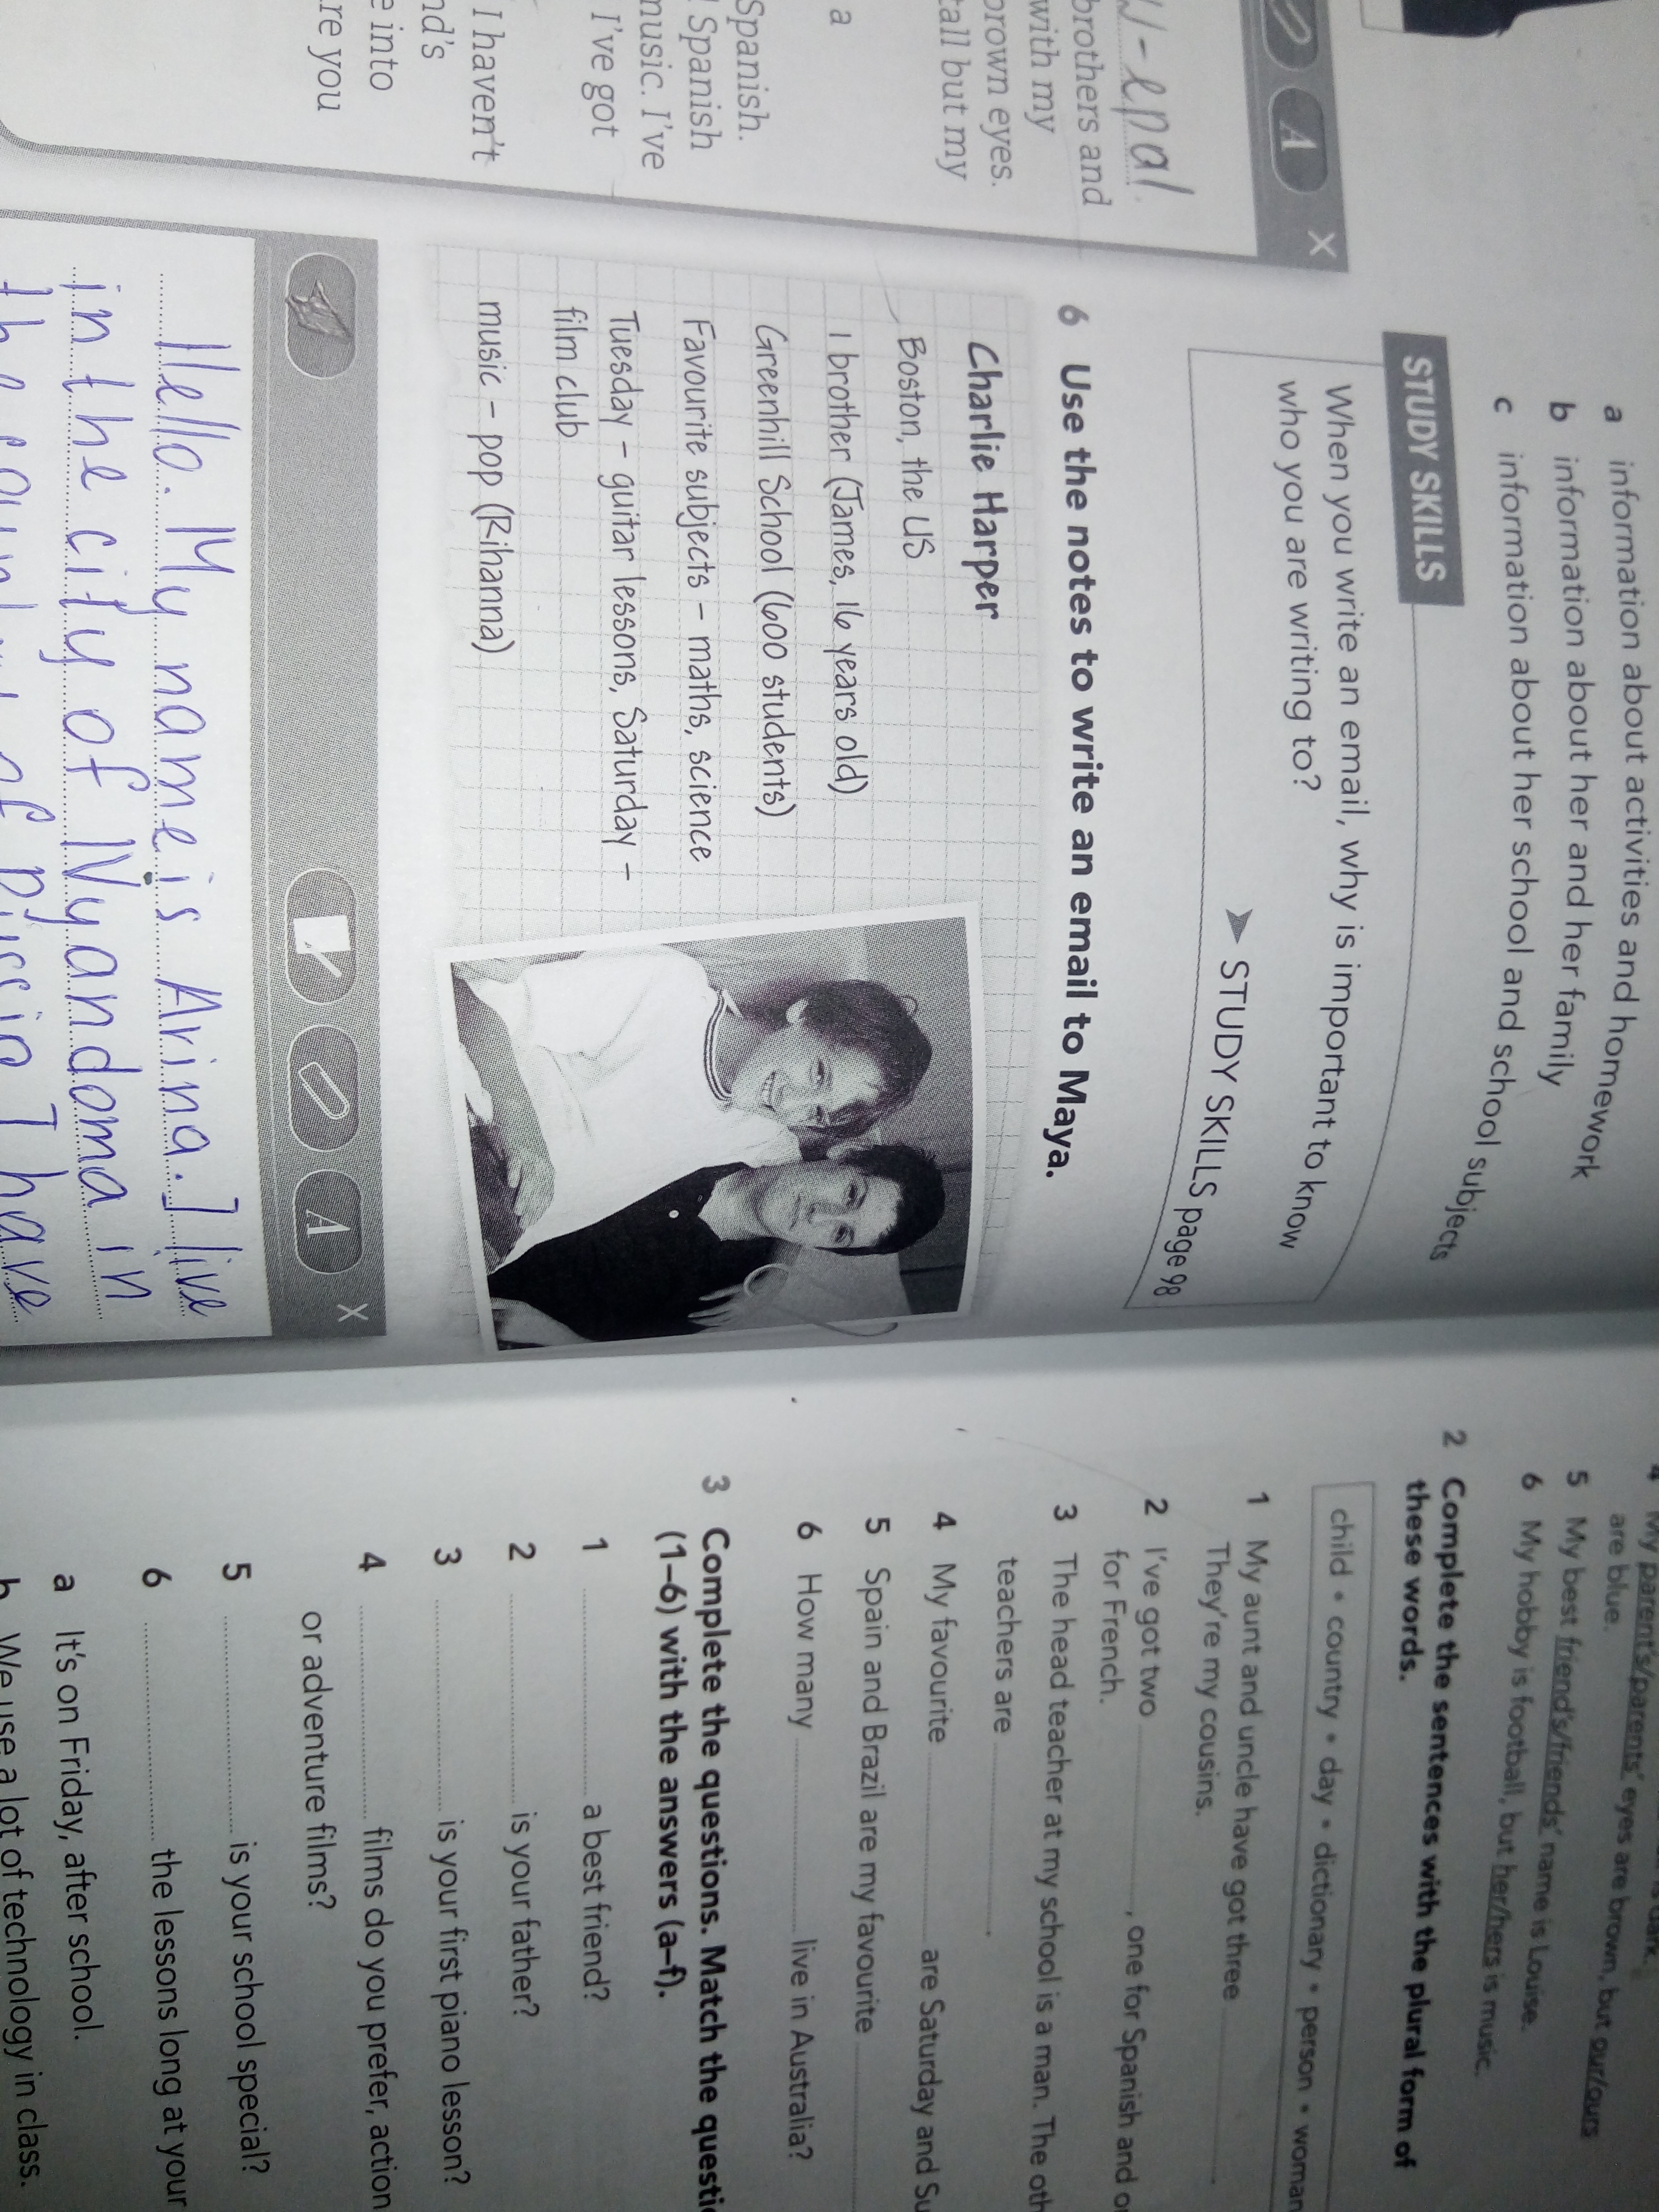 N-epal.
A X
brothers and
with my
brown eyes.
tall but my
a
Spanish.
Spanish
music. I've
I've got
I haven't
nd's
e into
re you
a information about activities and homework
b information about her and her family
c information about her school and school subjects
STUDY SKILLS
When you write an email, why is important to know
who you are writing to?
➤ STUDY SKILLS page 98
6 Use the notes to write an email to Maya.
Charlie Harper
Boston, the US
1 brother (James, 16 years old)
Greenhill School (600 students)
Favourite subjects – maths, science
Tuesday – guitar lessons, Saturday –
film club
music – pop (Rihanna)
A X
Hello. My name is Arina. I live
in the city of Nyandoma in
have
4 My parent's/parents' eyes are brown, but our/ours
are blue.
5 My best friend's/friends' name is Louise.
6 My hobby is football, but her/hers is music.
2 Complete the sentences with the plural form of
these words.
child • country • day • dictionary • person • woman
1 My aunt and uncle have got three
They're my cousins.
2 I've got two , one for Spanish and
for French.
3 The head teacher at my school is a man. The
teachers are .
4 My favourite are Saturday and
5 Spain and Brazil are my favourite
6 How many live in Australia?
3 Complete the questions. Match the
(1–6) with the answers (a–f).
1 a best friend?
2 is your father?
3 is your first piano lesson?
4 films do you prefer, action
or adventure films?
5 is your school special?
6 the lessons long at your
a It's on Friday, after school.
b We use a lot of technology in class.